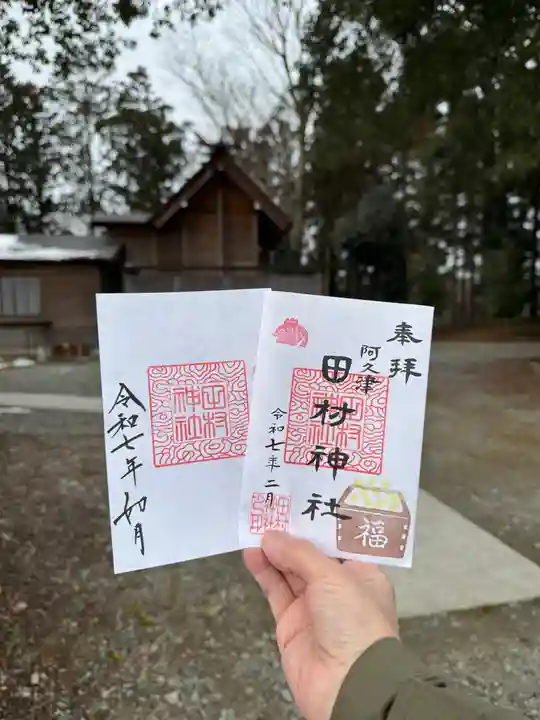 奉拝
阿久津
田村神社
令和七年二月
福
田村
神社
令和七年 如月
田村
神社